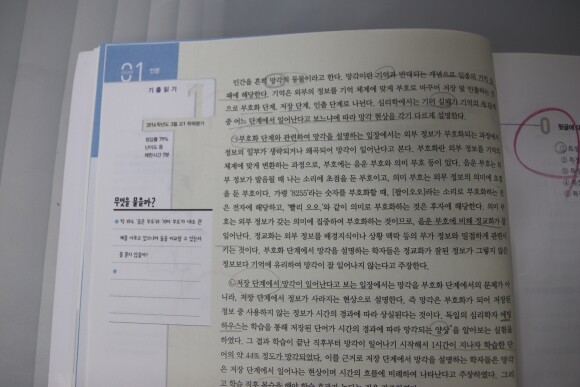 01 인문
기출읽기
1
2016학년도 3월 고1 학력평가
정답률 79%
난이도 중
제한시간 5분
무엇을 물을까?
인간을 흔히 망각의 동물이라고 한다. 망각이란 기억과 반대되는 개념으로
해당한다. 기억은 외부의 정보를 기억 체계에 맞게 부호로 바꾸어 저장 및 인출하는
으로 부호화 단계, 저장 단계, 인출 단계로 나뉜다. 심리학에서는 기억 실패가 기억의
중 어느 단계에서 일어난다고 보느냐에 따라 망각 현상을 각기 다르게 설명한다.
㉠부호화 단계와 관련하여 망각을 설명하는 입장에서는 외부 정보가 부호화되는 과정에서
정보의 일부가 생략되거나 왜곡되어 망각이 일어난다고 본다. 부호화란 외부 정보를 기억의
체계에 맞게 변환하는 과정으로, 부호에는 음운 부호와 의미 부호 등이 있다. 음운 부호는
부 정보가 발음될 때 나는 소리에 초점을 둔 부호이고, 의미 부호는 외부 정보의 의미에 초점
을 둔 부호이다. 가령 '8255'라는 숫자를 부호화할 때, [팔이오오]라는 소리로 부호화하는
은 전자에 해당하고, '빨리 오오.'와 같이 의미로 부호화하는 것은 후자에 해당한다. 의미
호는 외부 정보가 갖는 의미에 집중하여 부호화하는 것이므로, 음운 부호에 비해 정교화가 잘
일어난다. 정교화는 외부 정보를 배경지식이나 상황 맥락 등의 부가 정보와 밀접하게 관련시
키는 것이다. 부호화 단계에서 망각을 설명하는 학자들은 정교화가 잘된 정보가 그렇지 않은
정보보다 기억에 유리하여 망각이 잘 일어나지 않는다고 주장한다.
㉡저장 단계에서 망각이 일어난다고 보는 입장에서는 망각을 부호화 단계에서의 문제가 아
니라, 저장 단계에서 정보가 사라지는 현상으로 설명한다. 즉 망각은 부호화가 되어 저장된
정보 중 사용하지 않는 정보가 시간의 경과에 따라 상실된다는 것이다. 독일의 심리학자 에빙
하우스는 학습을 통해 저장된 단어가 시간의 경과에 따라 망각되는 양상을 알아보는 실험을
하였다. 그 결과 학습이 끝난 직후부터 망각이 일어나기 시작해서 1시간이 지나자 학습한 단
어의 약 44% 정도가 망각되었다. 이를 근거로 저장 단계에서 망각을 설명하는 학자들은 망각
은 저장 단계에서 일어나는 현상이며 시간의 흐름에 비례하여 나타난다고 주장하였다.